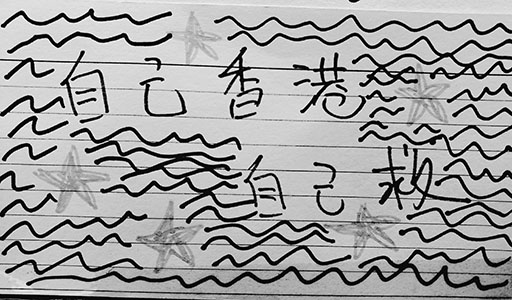 自己香港
自己救